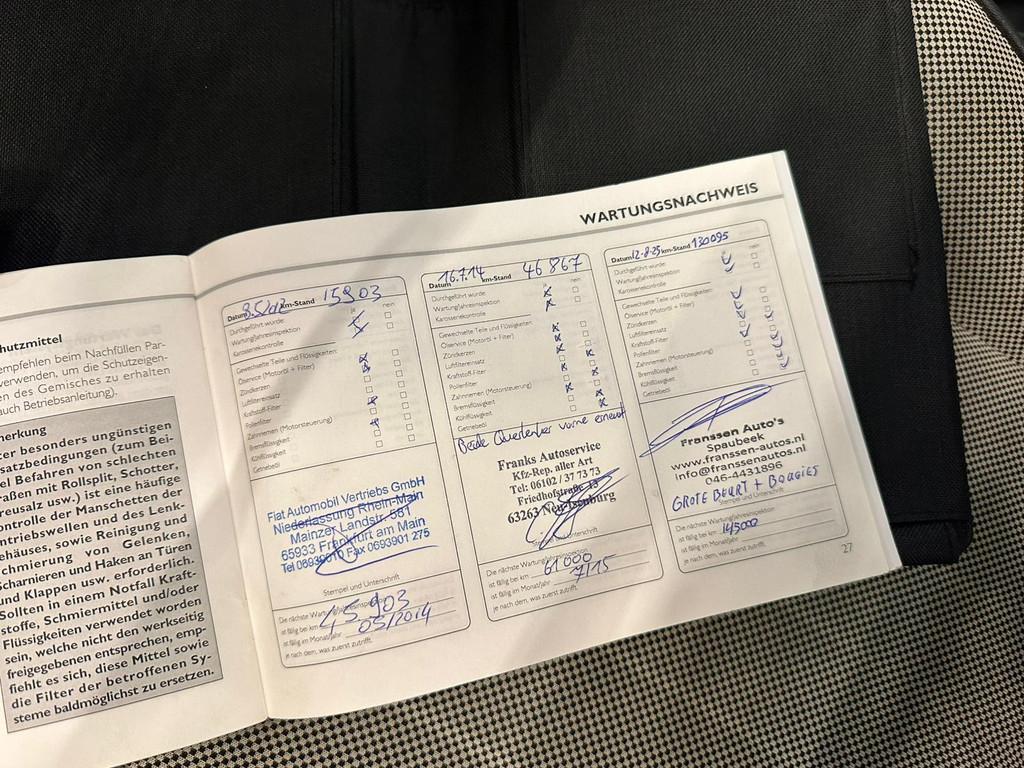 WARTUNGSNACHWEIS
hutzmittel
empfehlen beim Nachfüllen Par-
verwenden, um die Schutzeigen-
en des Gemisches zu erhalten
auch Betriebsanleitung).
merkung
ter besonders ungünstigen
satzbedingungen (zum Bei-
el Befahren von schlechten
raßen mit Rollsplit, Schotter,
reusalz usw.) ist eine häufige
ontrolle der Manschetten der
ntriebswellen und des Lenk-
ehäuses, sowie Reinigung und
chmierung von Gelenken,
charnieren und Haken an Türen
und Klappen usw. erforderlich.
Sollten in einem Notfall Kraft-
stoffe, Schmiermittel und/oder
Flüssigkeiten verwendet worden
sein, welche nicht den werkseitig
freigegebenen entsprechen, emp-
fiehlt es sich, diese Mittel sowie
die Filter der betroffenen Sy-
steme baldmöglichst zu ersetzen.
Datum km-Stand 15903
Durchgeführt wurde: ja nein
Wartung/Jahresinspektion
Karosseriekontrolle
Gewechselte Teile und Flüssigkeiten:
Ölservice (Motoröl + Filter)
Zündkerzen
Luftfiltereinsatz
Kraftstoff-Filter
Pollenfilter
Zahnriemen (Motorsteuerung)
Bremsflüssigkeit
Kühlflüssigkeit
Getriebeöl
Fiat Automobil Vertriebs GmbH
Niederlassung Rhein-Main
Mainzer Landstr. 581
65933 Frankfurt am Main
Fax 0693901 275
Stempel und Unterschrift
Die nächste Wartung/Jahresinspektion
ist fällig bei km 45903
ist fällig im Monat/Jahr 05/2014
je nach dem, was zuerst zutrifft.
Datum 16.7.14 km-Stand 46867
Durchgeführt wurde: ja nein
Wartung/Jahresinspektion
Karosseriekontrolle
Gewechselte Teile und Flüssigkeiten:
Ölservice (Motoröl + Filter)
Zündkerzen
Luftfiltereinsatz
Kraftstoff-Filter
Pollenfilter
Zahnriemen (Motorsteuerung)
Bremsflüssigkeit
Kühlflüssigkeit
Getriebeöl
Beide Querlenker vorne erneuert
Franks Autoservice
Kfz-Rep. aller Art
Tel: 06102 / 37 73 73
Friedhofstraße 13
63263 Neu-Isenburg
Unterschrift
Die nächste Wartung/Jahresinspektion
ist fällig bei km 61000
ist fällig im Monat/Jahr 7/15
je nach dem, was zuerst zutrifft.
Datum 12-8-25 km-Stand 130095
Durchgeführt wurde: ja nein
Wartung/Jahresinspektion
Karosseriekontrolle
Gewechselte Teile und Flüssigkeiten:
Ölservice (Motoröl + Filter)
Zündkerzen
Luftfiltereinsatz
Kraftstoff-Filter
Pollenfilter
Zahnriemen (Motorsteuerung)
Bremsflüssigkeit
Kühlflüssigkeit
Getriebeöl
Franssen Auto's
Spaubeek
www.franssen-autos.nl
info@franssenautos.nl
046-4431896
Stempel und Unterschrift
GROTE BEURT + BOUGIES
Die nächste Wartung/Jahresinspektion
ist fällig bei km 145000
ist fällig im Monat/Jahr
je nach dem, was zuerst zutrifft.
27